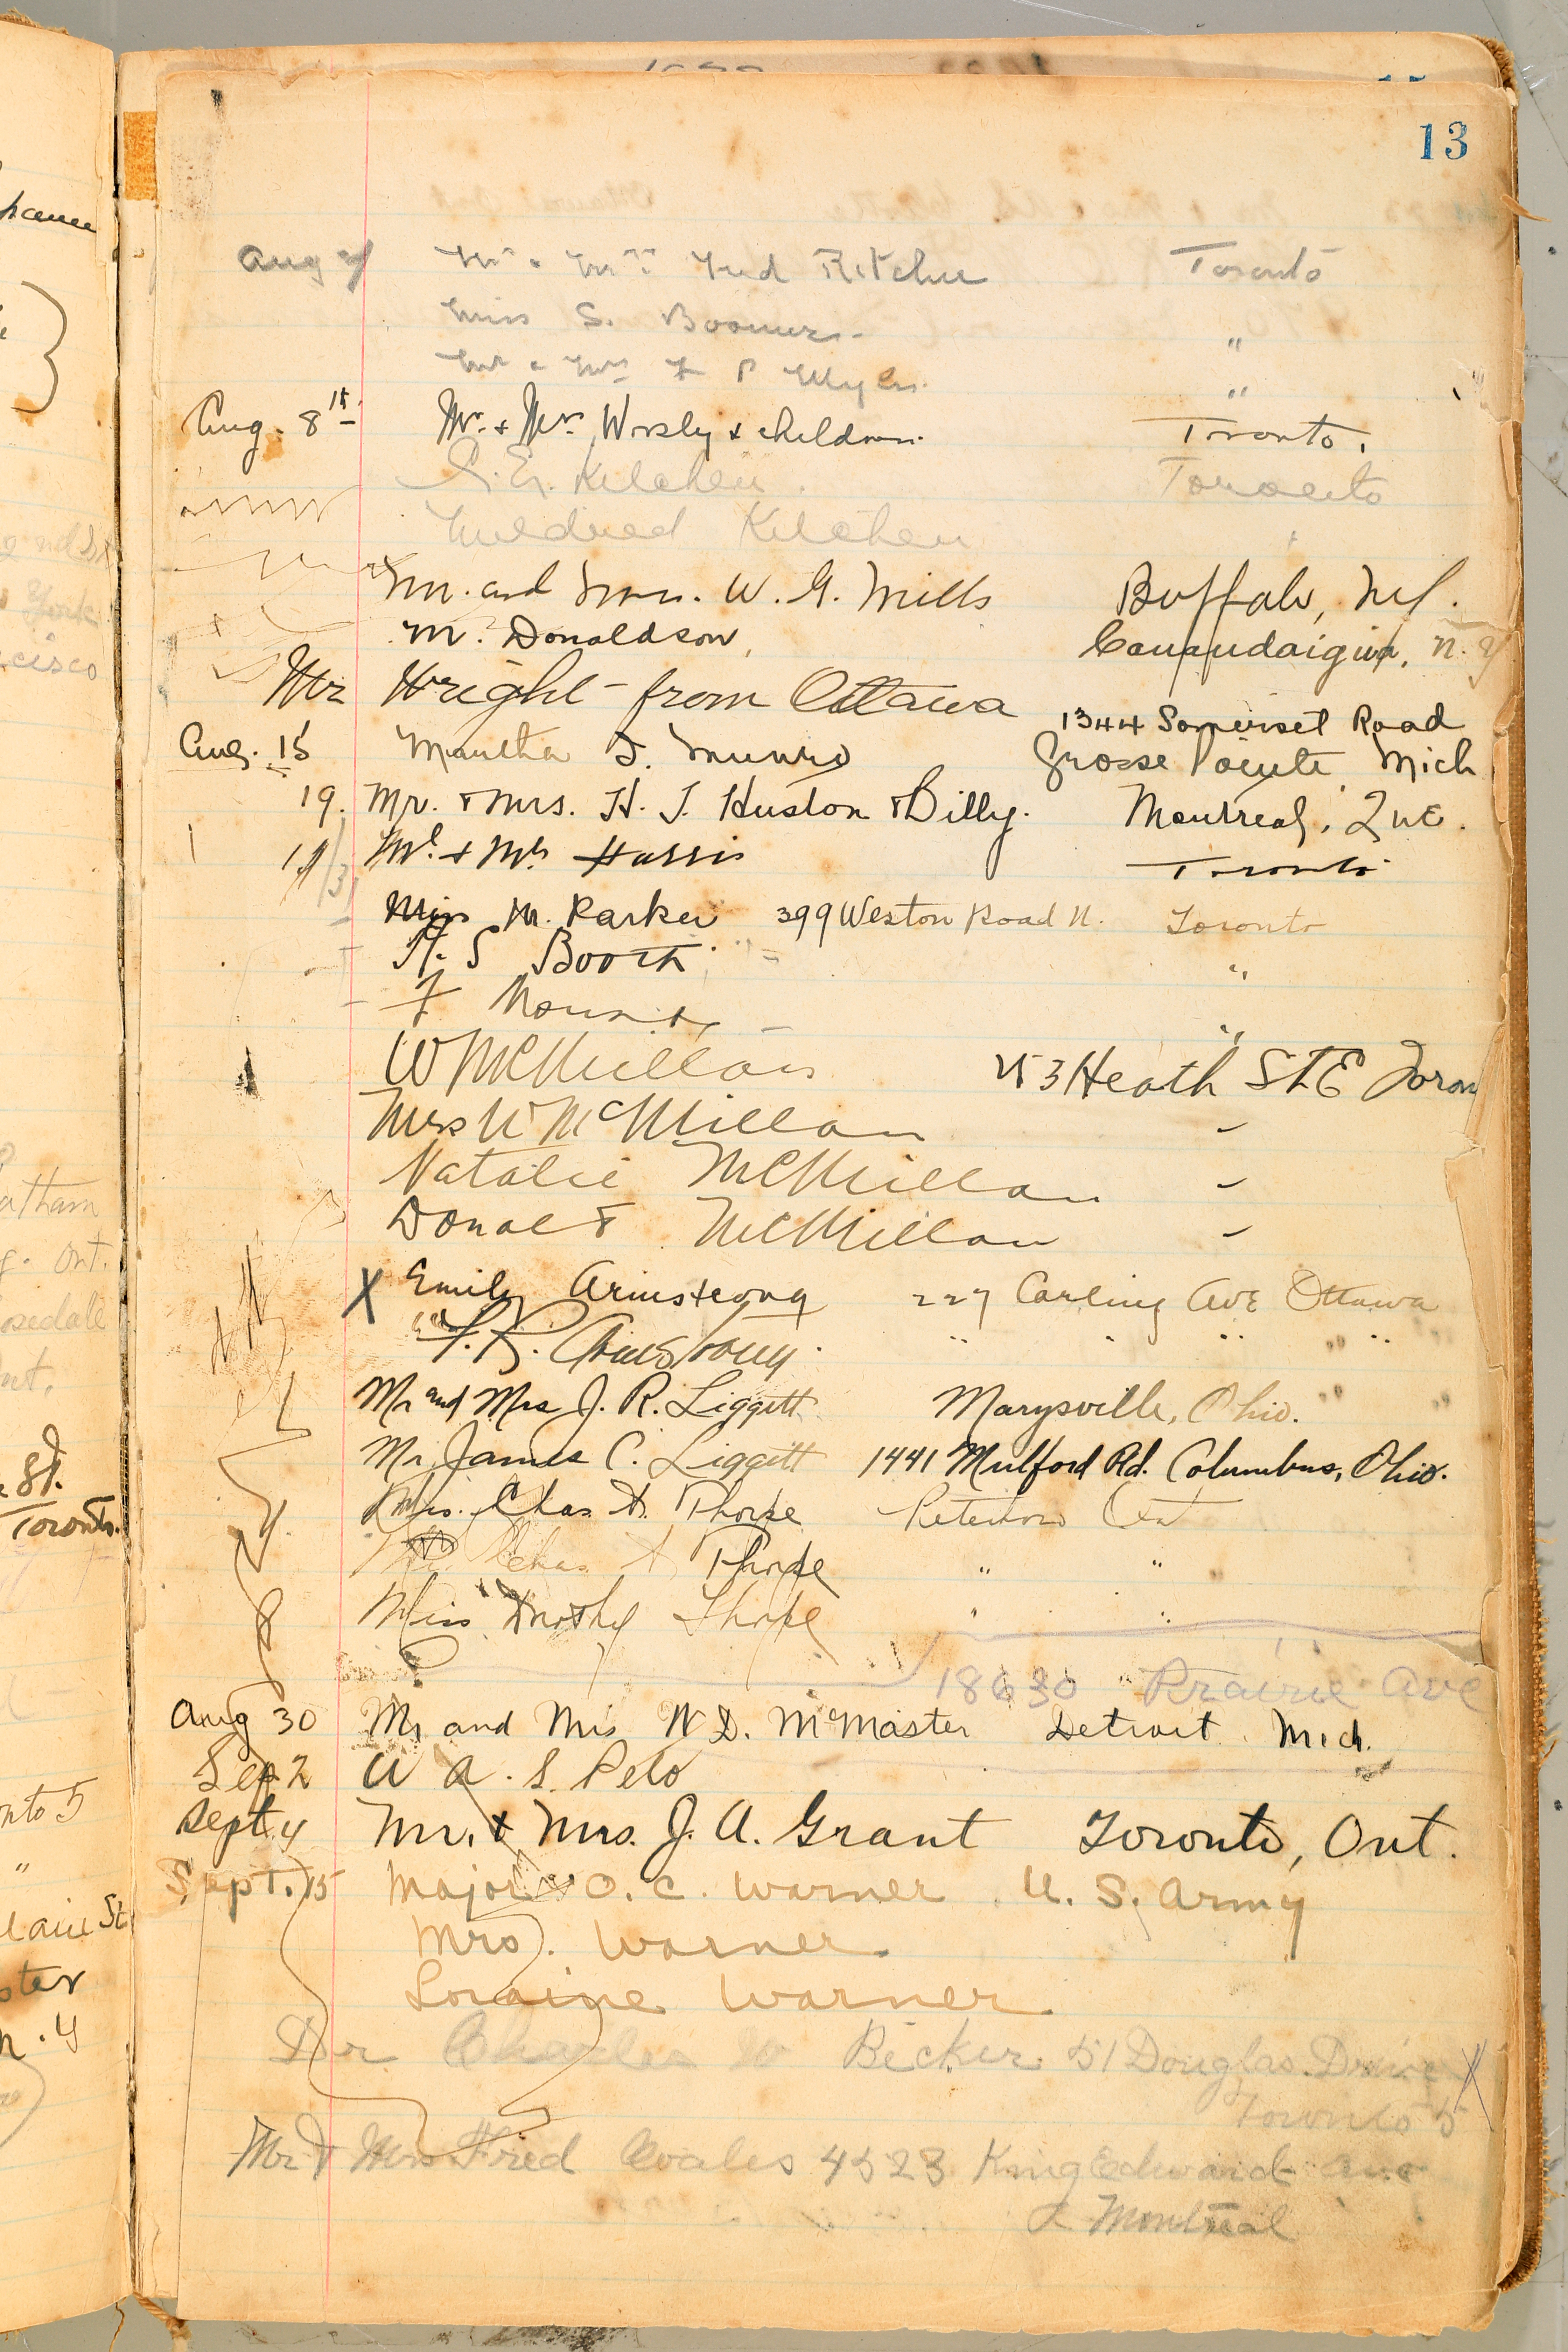 13
Aug 7 Mr & Mrs Fred Ritchie Toronto
Miss S. Boomer "
Mr & Mrs F P Myers "
Aug. 8th Mr. & Mrs. Worsly & children. Toronto.
Kitchen Toronto
Mildred Kitchen
Mr. and Mrs. W. G. Mills Buffalo, N.Y.
M. Donaldson, Canandaigua, N.Y.
Mr Wright from Ottawa
1344 Somerset Road
Aug. 15 Martha J. Munro Grosse Pointe Mich
19. Mr. & Mrs. H. J. Huston & Billy. Montreal, Que.
Mr. & Mrs Harris Toronto
Miss M. Parker 399 Weston Road N. Toronto
H. S Booth "
F "
W McMillan 53 Heath St E Toron
Mrs W McMillan "
Natalie McMillan "
Donald McMillan "
X Emily Armstrong 227 Carling Ave Ottawa
F. R. Armstrong " " " "
Mr and Mrs J. R. Liggett Marysville, Ohio.
Mr. James C. Liggitt 1441 Mulford Rd. Columbus, Ohio.
Mrs. Chas A. Thorpe Peterboro Ont
Chas A. Thorpe " "
Miss Dorothy Thorpe " "
18630 Prairie Ave
Aug 30 Mr and Mrs W D. McMaster Detroit Mich.
Sep 2 W A. S. Pelo
Sept 4 Mr. & Mrs. J. A. Grant Toronto, Ont.
Sept. 15 Major O. C. Warner U. S. Army
Mrs. Warner.
Loraine Warner
Dr Charles W Becker 51 Douglas Drive X
Toronto 5
Mr & Mrs Fred Coales 4523 King Edward Ave
Montreal